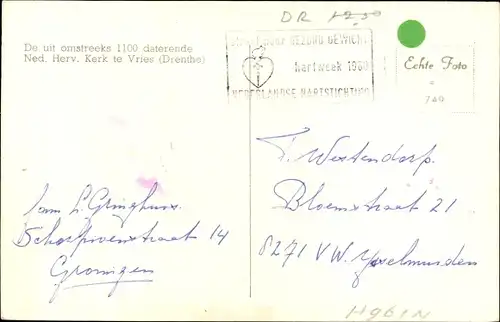 DR 1250
De uit omstreeks 1100 daterende
Ned. Herv. Kerk te Vries (Drenthe)
GEZOND GEWICHT
hartweek 1980
NEDERLANDSE HARTSTICHTING
Echte Foto
740
T. Westendorp.
Bloemstraat 21
8271 VW. Ysselmuiden
fam L. Gringhuis.
Schorpioenstraat 14
Groningen
H961N